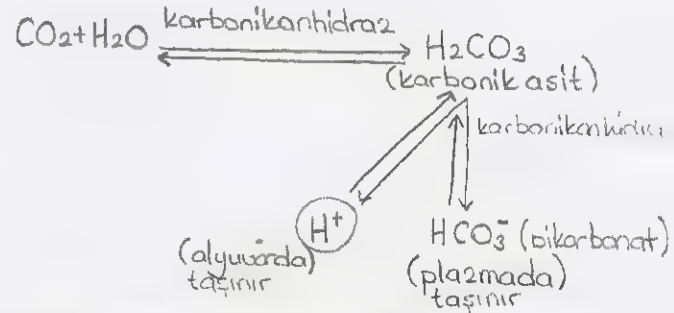 CO₂+H₂O karbonikanhidraz H₂CO₃
(karbonik asit)
H⁺
(alyuvarda)
taşınır
HCO₃⁻ (bikarbonat)
(plazmada)
taşınır